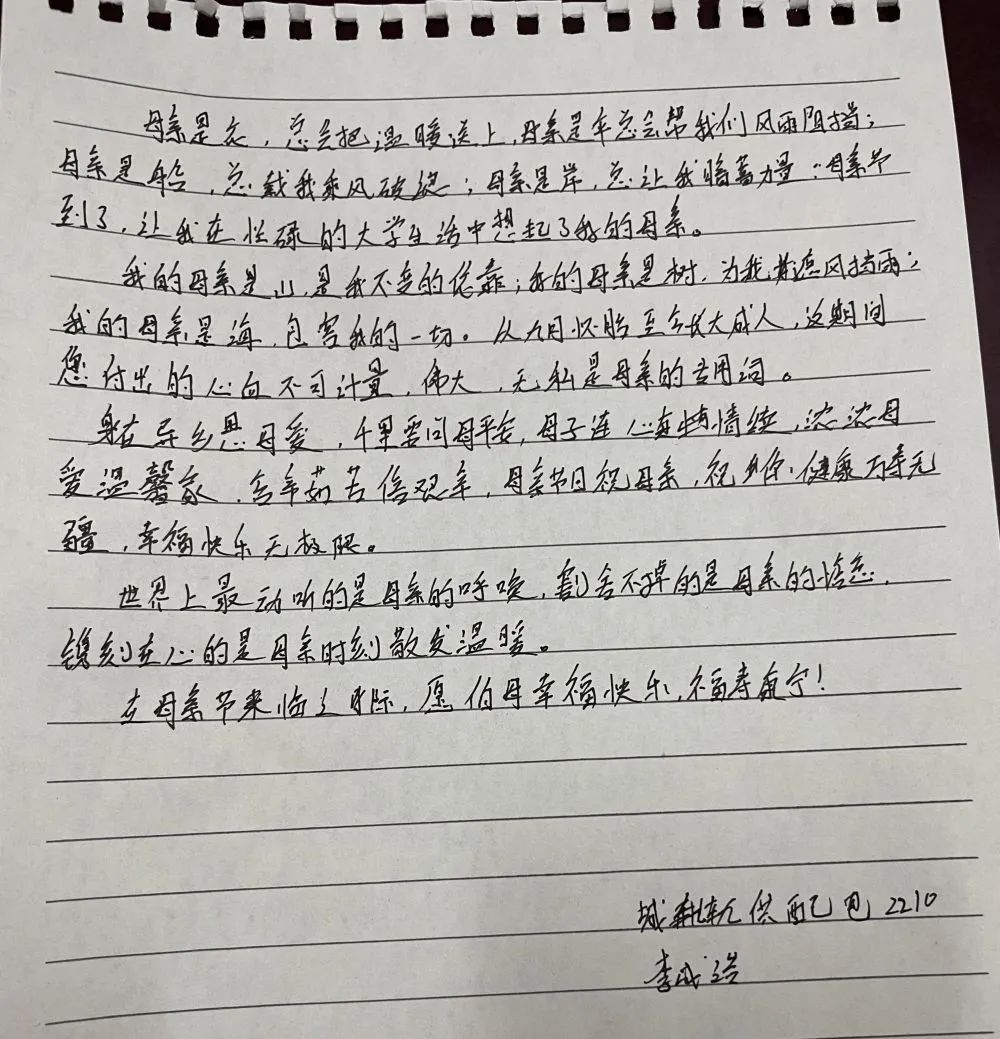 母亲是衣，总会把温暖送上，母亲是伞总会帮我们风雨阻挡；
母亲是船，总载我乘风破绽；母亲是岸，总让我暗蓄力量；母亲节
到了，让我在忙碌的大学生活中想起了我的母亲。
我的母亲是山，是我不变的依靠；我的母亲是树，为我遮风挡雨；
我的母亲是海，包容我的一切。从九月怀胎至今长大成人，这期间
您付出的心血不可计量，伟大，无私是母亲的专用词。
身在异乡思母爱，千里要问母平安，母子连心真情续，浓浓母
爱温馨家，含辛茹苦倍艰辛，母亲节日祝母亲，祝你健康万寿无
疆，幸福快乐无极限。
世界上最动听的是母亲的呼唤，割舍不掉的是母亲的惦念，
镌刻在心的是母亲时刻散发温暖。
在母亲节来临之际，愿伯母幸福快乐，福寿康宁！
城轨供配电2210
李成浩